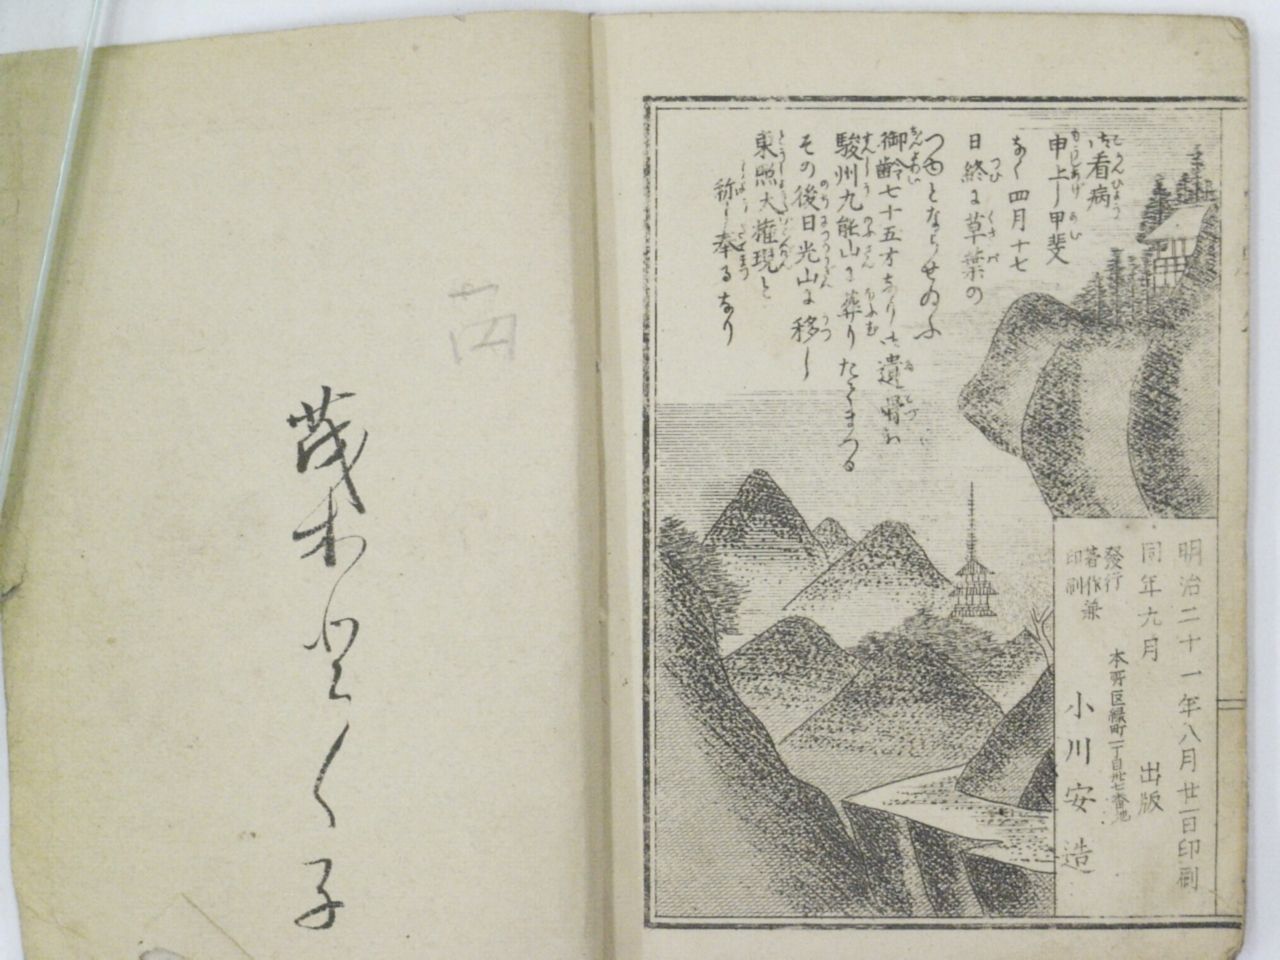 御看病
申上し甲斐
なく四月十七
日終に草葉の
つゆとならせ給ふ
御齢七十五才なり御遺骨は
駿州九能山に葬りたてまつる
その後日光山に移し
東照大権現と
称し奉るなり
明治二十一年八月廿一日印刷
同年九月 出版
發行
著作兼
印刷
本所区緑町一丁目廿七番地
小川安造
茂木とく子